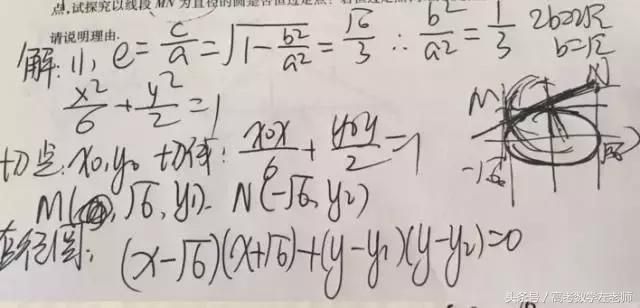 点,试探究以线段 MN 为直径的圆是否恒过定点?若恒过定点
请说明理由.
解:(1) e = c/a = √(1 - b²/a²) = √6/3 ∴ b²/a² = 1/3 2b=2√2
b=√2
x²/6 + y²/2 = 1
切点: x₀, y₀ 切线: x₀x/6 + y₀y/2 = 1
M(√6, y₁). N(-√6, y₂)
直径圆: (x-√6)(x+√6)+(y-y₁)(y-y₂)=0
M
N
-√6
√6
头条号 / 高考数学左老师